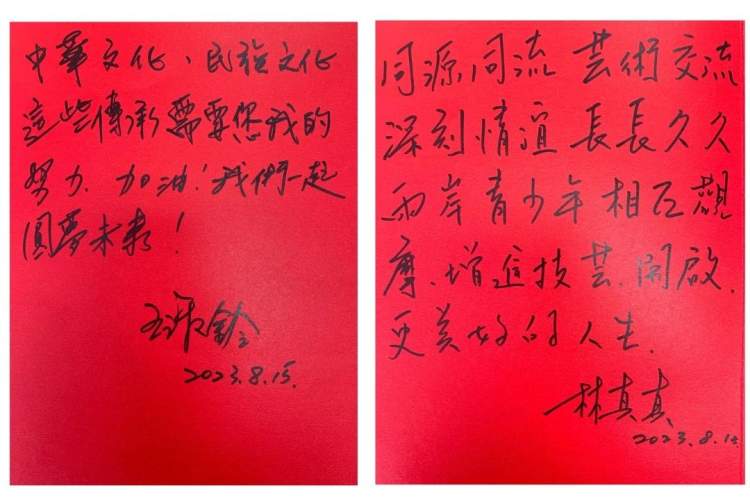 中華文化、民族文化
這些傳承需要您我的
努力、加油！我們一起
圓夢未來！
2023.8.15.
同源同流 芸術交流
深刻情誼 長長久久
兩岸青少年相互觀
摩、增進技芸、開啟、
更美好的人生.
林真真
2023.8.15